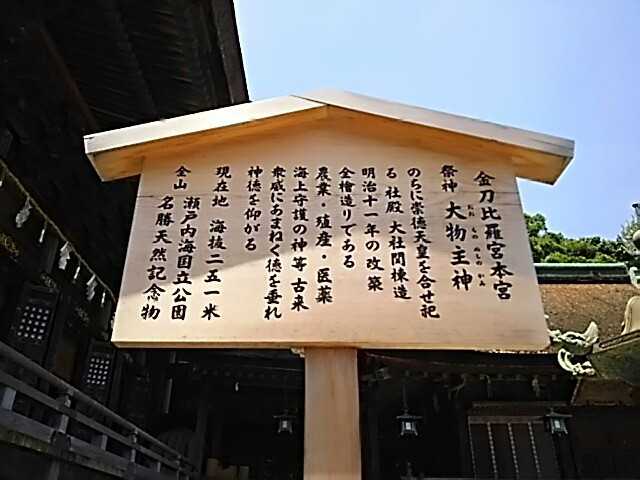 金刀比羅宮本宮
祭神 大物主神
おおものぬしのかみ
のちに崇徳天皇を合せ祀
る 社殿 大社関棟造
明治十一年の改築
全檜造りである
農業・殖産・医薬
海上守護の神等古来
衆庶にあまねく徳を垂れ
神徳を仰がる
現在地 海抜二五一米
全山 瀬戸内海国立公園
名勝天然記念物